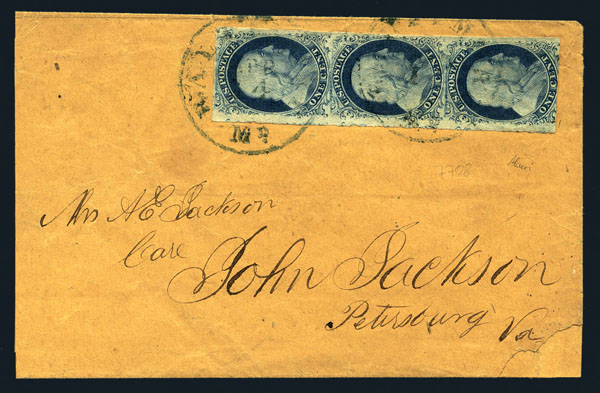 U.S. POSTAGE ONE CENT.
U.S. POSTAGE ONE CENT.
U.S. POSTAGE ONE CENT.
7708
Mrs A E Jackson
Care
John Jackson
Petersburg
Va